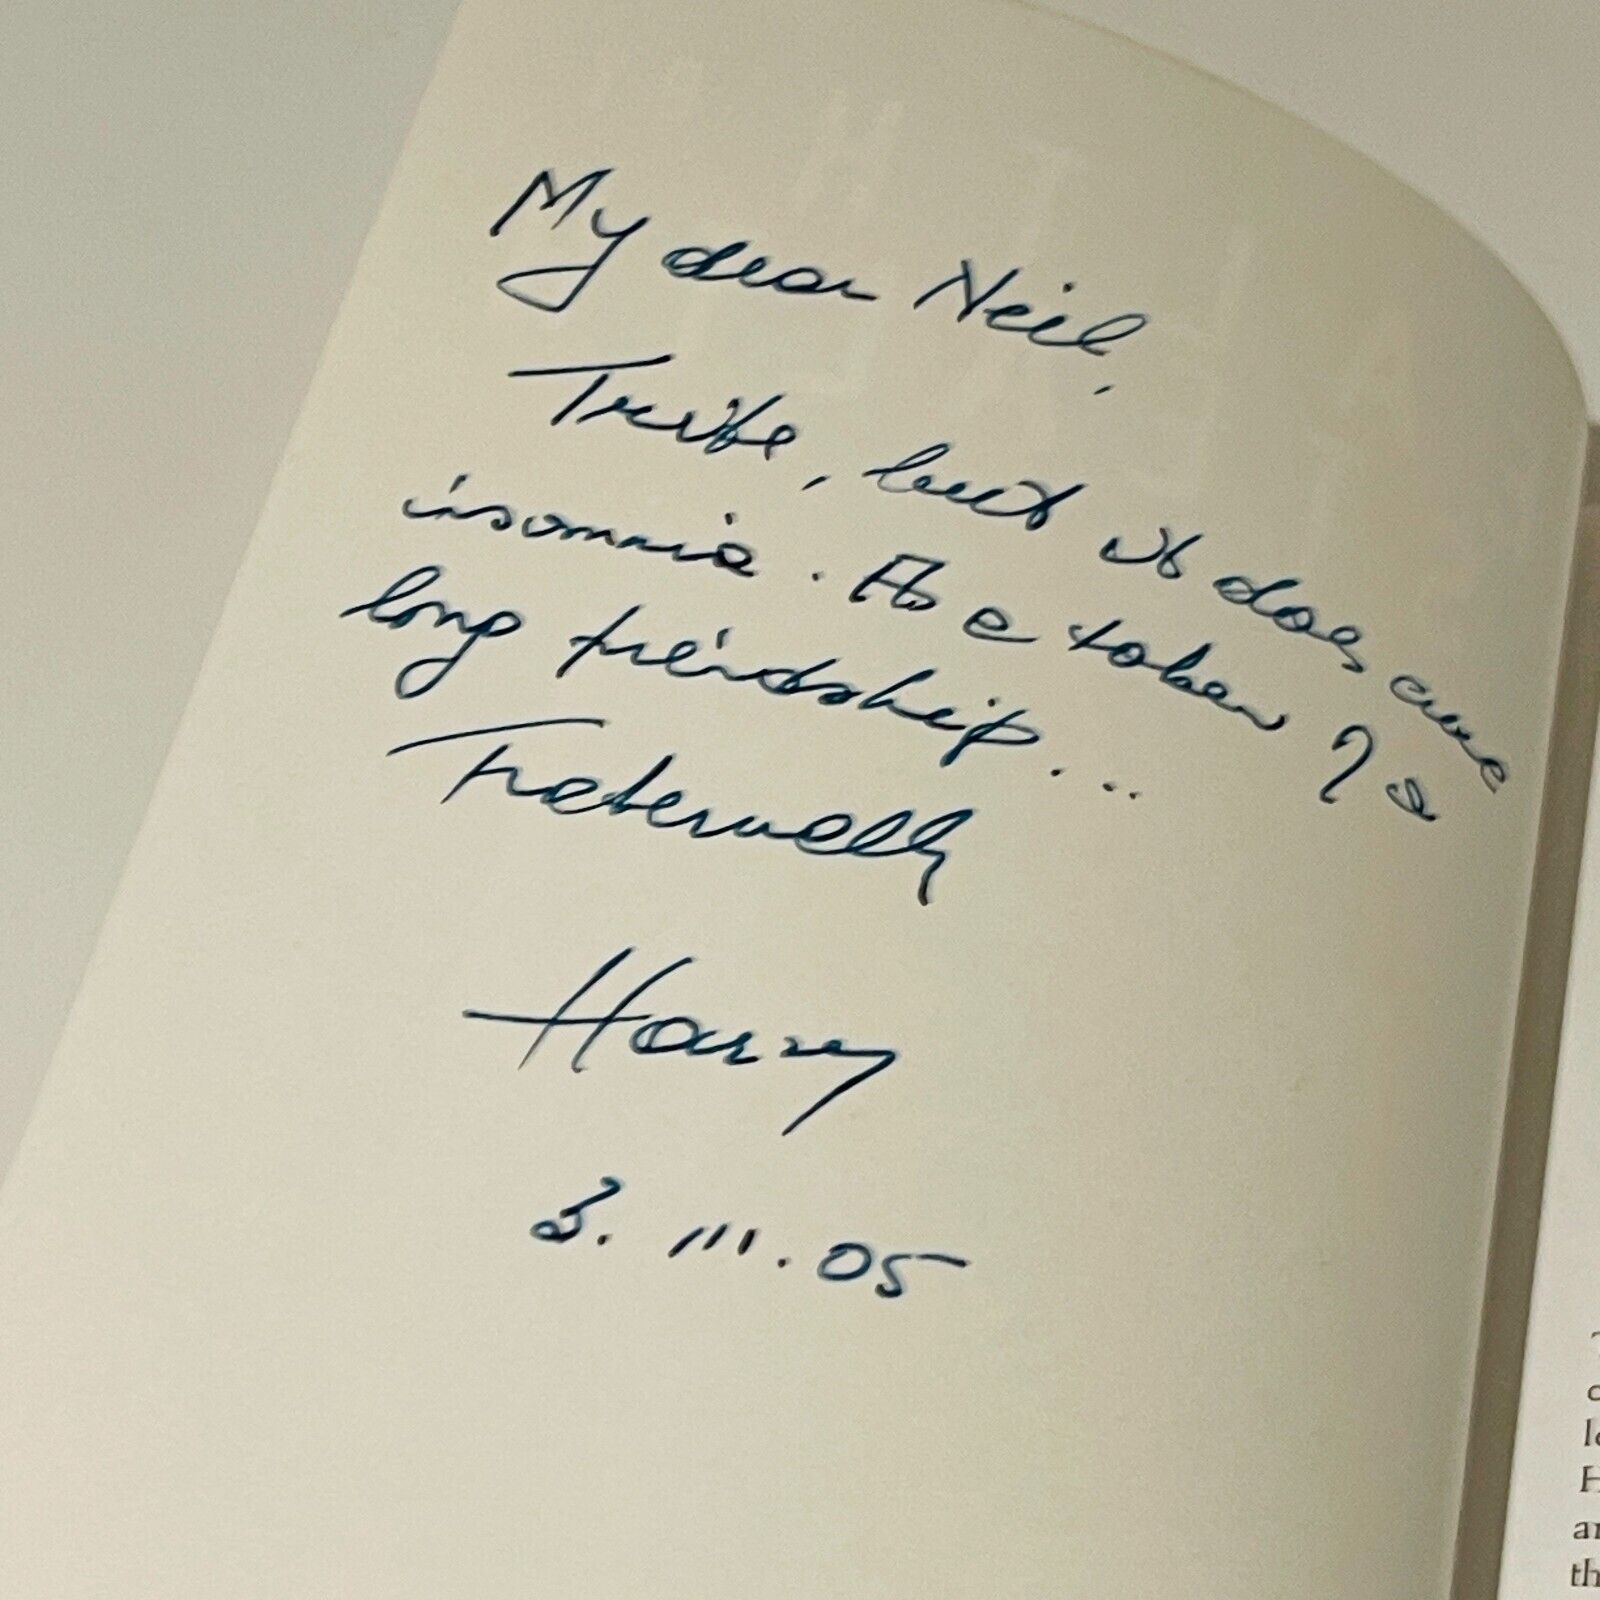 My dear Neil,
Trite, but it does cure
insomnia. As a token of a
long friendship...
Fraternally
Harry
3. III. 05
H
an
th